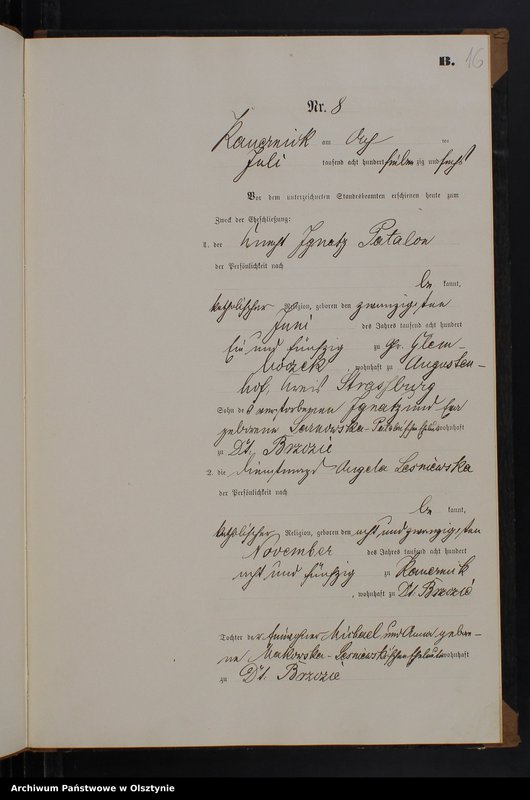 B. 16
Nr. 8
Kauernick am Acht ten
Juli tausend acht hundert sieben zig und sechs
Vor dem unterzeichneten Standesbeamten erschienen heute zum
Zweck der Eheschließung:
1. der Knecht Ignatz Patalon
der Persönlichkeit nach
be kannt,
katholischer Religion, geboren den zwanzigsten
Juni des Jahres tausend acht hundert
Ein und fünfzig zu Gr. Glem-
boczek, wohnhaft zu Augusten-
hof, Kreis Strassburg
Sohn des verstorbenen Ignatz und Eva
geborene Sarnowska-Patalonschen Eheleute wohnhaft
zu Dt. Brzozie
2. die Dienstmagd Angela Lesniewska
der Persönlichkeit nach
be kannt,
katholischer Religion, geboren den acht und zwanzigsten
November des Jahres tausend acht hundert
acht und fünfzig zu Kauernik
, wohnhaft zu Dt. Brzozie
Tochter der Einwohner Michael und Anna gebore-
ne Makowska-Lesniewskischen Eheleute wohnhaft
zu Dt. Brzozie
Archiwum Państwowe w Olsztynie